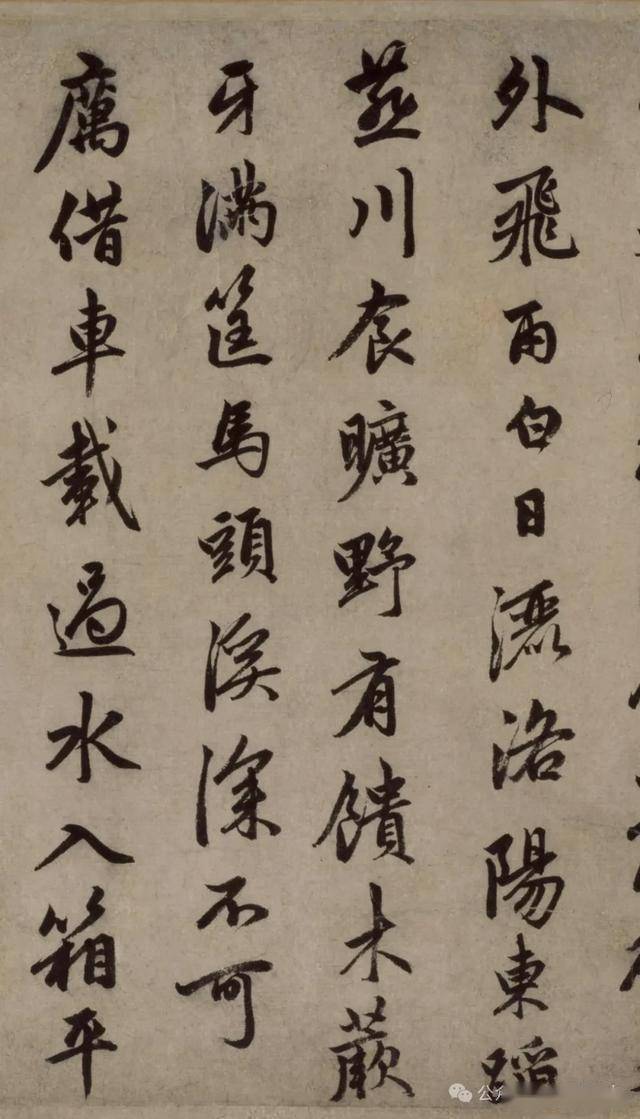 外飛雨白日灑洛陽東蹈
燕川食曠野有饋木蕨
牙滿筐馬頭溪深不可
厲借車載過水入箱平